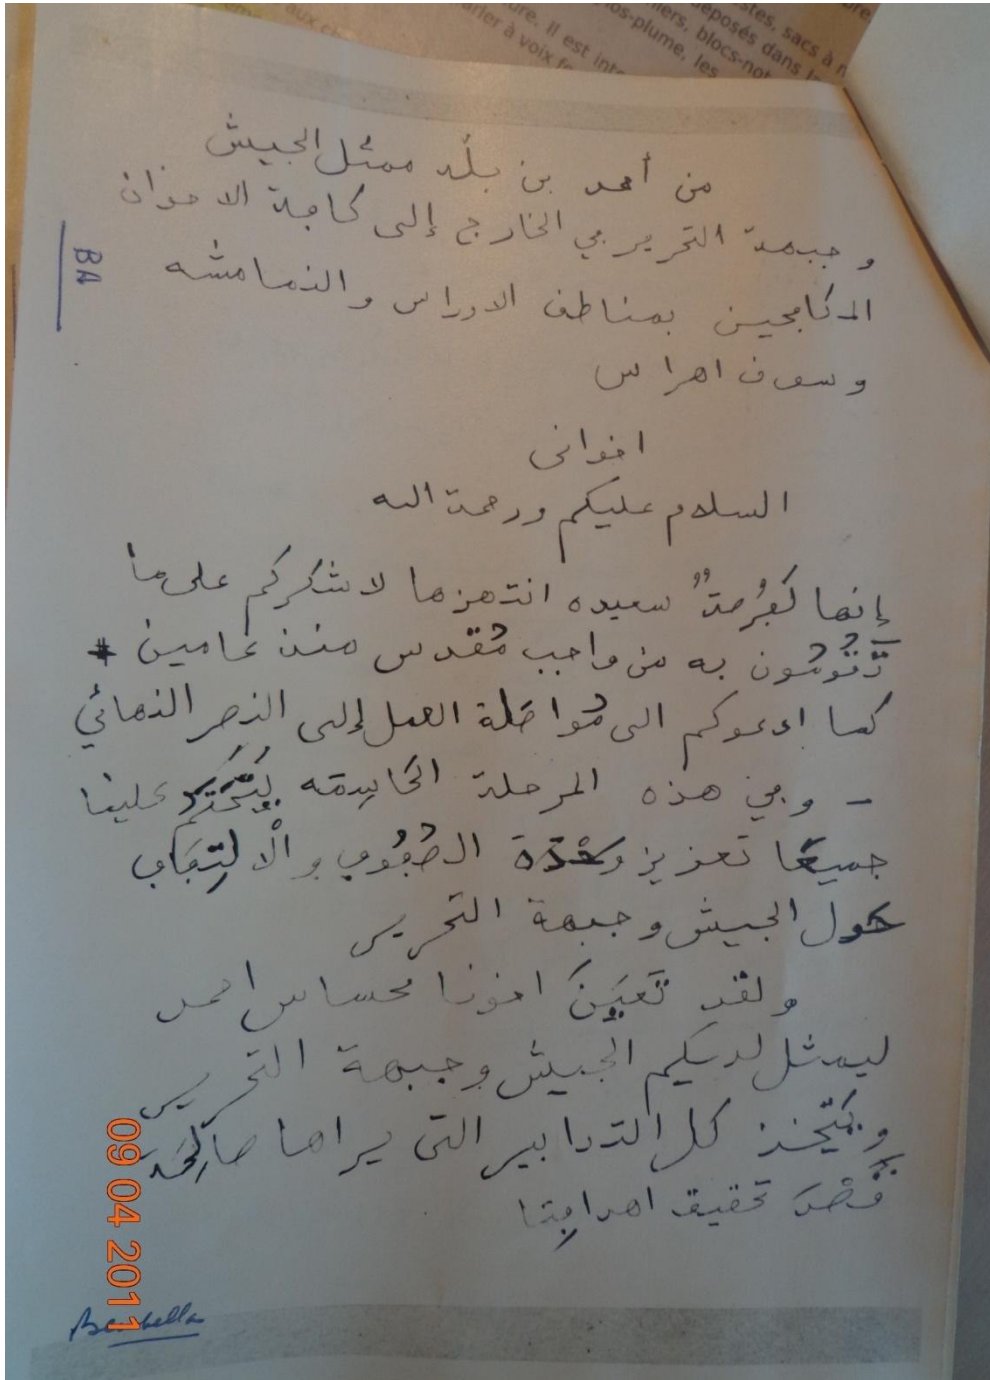 من أحمد بن بلّه ممثل الجيش
وجبهة التحرير في الخارج إلى كافة الاخوان
المكافحين بمناطق الاوراس والنمامشه
وسوق اهراس
اخوانى
السلام عليكم ورحمة الله
إنها لفُرصةٌ سعيده انتهزها لاشكركم على ما
تَقُومُون به من واجب مُقدس منذ عامين
كما ادعوكم الى مُواصَلة العمل إلى النصر النهائي
– وفي هذه المرحلة الحَاسِمَه يَتَحَتَّم علينا
جميعًا تعزيز وَحْدَة الصُفُوف والْالتِفَاف
حَول الجيش وجبهة التحرير
ولقد تَعَيَنَ اخونا محساس احمد
ليمثل لديكم الجيش وجبهة التحرير
ويَتَّخذ كل التدابير التى يراها صالِحَة
قَصْدَ تحقيق اهدافِنا
BA
09 04 2011
Benbella
ostes, sacs à m
déposés dans l
blocs-not
los-plume, les
ure. Il est inte
arler à voix
aux